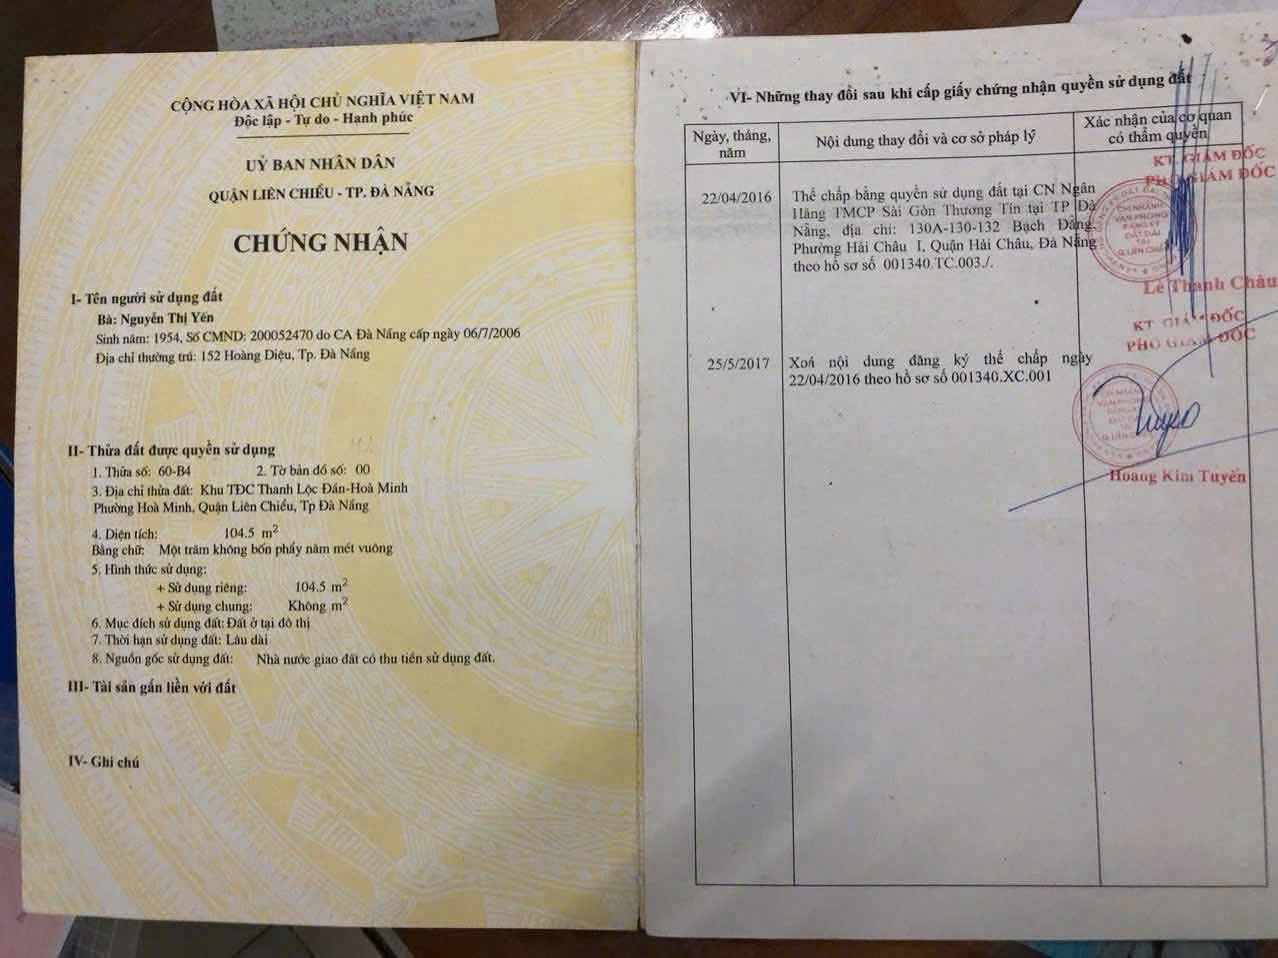 CỘNG HÒA XÃ HỘI CHỦ NGHĨA VIỆT NAM
Độc lập - Tự do - Hạnh phúc
UỶ BAN NHÂN DÂN
QUẬN LIÊN CHIỂU - TP. ĐÀ NẴNG
CHỨNG NHẬN
I- Tên người sử dụng đất
Bà: Nguyễn Thị Yến
Sinh năm: 1954, Số CMND: 200052470 do CA Đà Nẵng cấp ngày 06/7/2006
Địa chỉ thường trú: 152 Hoàng Diệu, Tp. Đà Nẵng
II- Thửa đất được quyền sử dụng
1. Thửa số: 60-B4 2. Tờ bản đồ số: 00
3. Địa chỉ thửa đất: Khu TĐC Thanh Lộc Đán-Hoà Minh
Phường Hoà Minh, Quận Liên Chiểu, Tp Đà Nẵng
4. Diện tích: 104.5 m2
Bằng chữ: Một trăm không bốn phẩy năm mét vuông
5. Hình thức sử dụng:
+ Sử dụng riêng: 104.5 m2
+ Sử dụng chung: Không m2
6. Mục đích sử dụng đất: Đất ở tại đô thị
7. Thời hạn sử dụng đất: Lâu dài
8. Nguồn gốc sử dụng đất: Nhà nước giao đất có thu tiền sử dụng đất.
III- Tài sản gắn liền với đất
IV- Ghi chú
VI- Những thay đổi sau khi cấp giấy chứng nhận quyền sử dụng đất
Ngày, tháng, năm
Nội dung thay đổi và cơ sở pháp lý
Xác nhận của cơ quan có thẩm quyền
22/04/2016
Thế chấp bằng quyền sử dụng đất tại CN Ngân
Hàng TMCP Sài Gòn Thương Tín tại TP Đà
Nẵng, địa chỉ: 130A-130-132 Bạch Đằng,
Phường Hải Châu I, Quận Hải Châu, Đà Nẵng
theo hồ sơ số 001340.TC.003./.
KT. GIÁM ĐỐC
PHÓ GIÁM ĐỐC
CHI NHÁNH
VĂN PHÒNG
ĐĂNG KÝ
ĐẤT ĐAI
TẠI
Q.LIÊN CHIỂU
Lê Thanh Châu
25/5/2017
Xoá nội dung đăng ký thế chấp ngày
22/04/2016 theo hồ sơ số 001340.XC.001
KT. GIÁM ĐỐC
PHÓ GIÁM ĐỐC
CHI NHÁNH
VĂN PHÒNG
Q.LIÊN CHIỂU
Hoàng Kim Tuyến